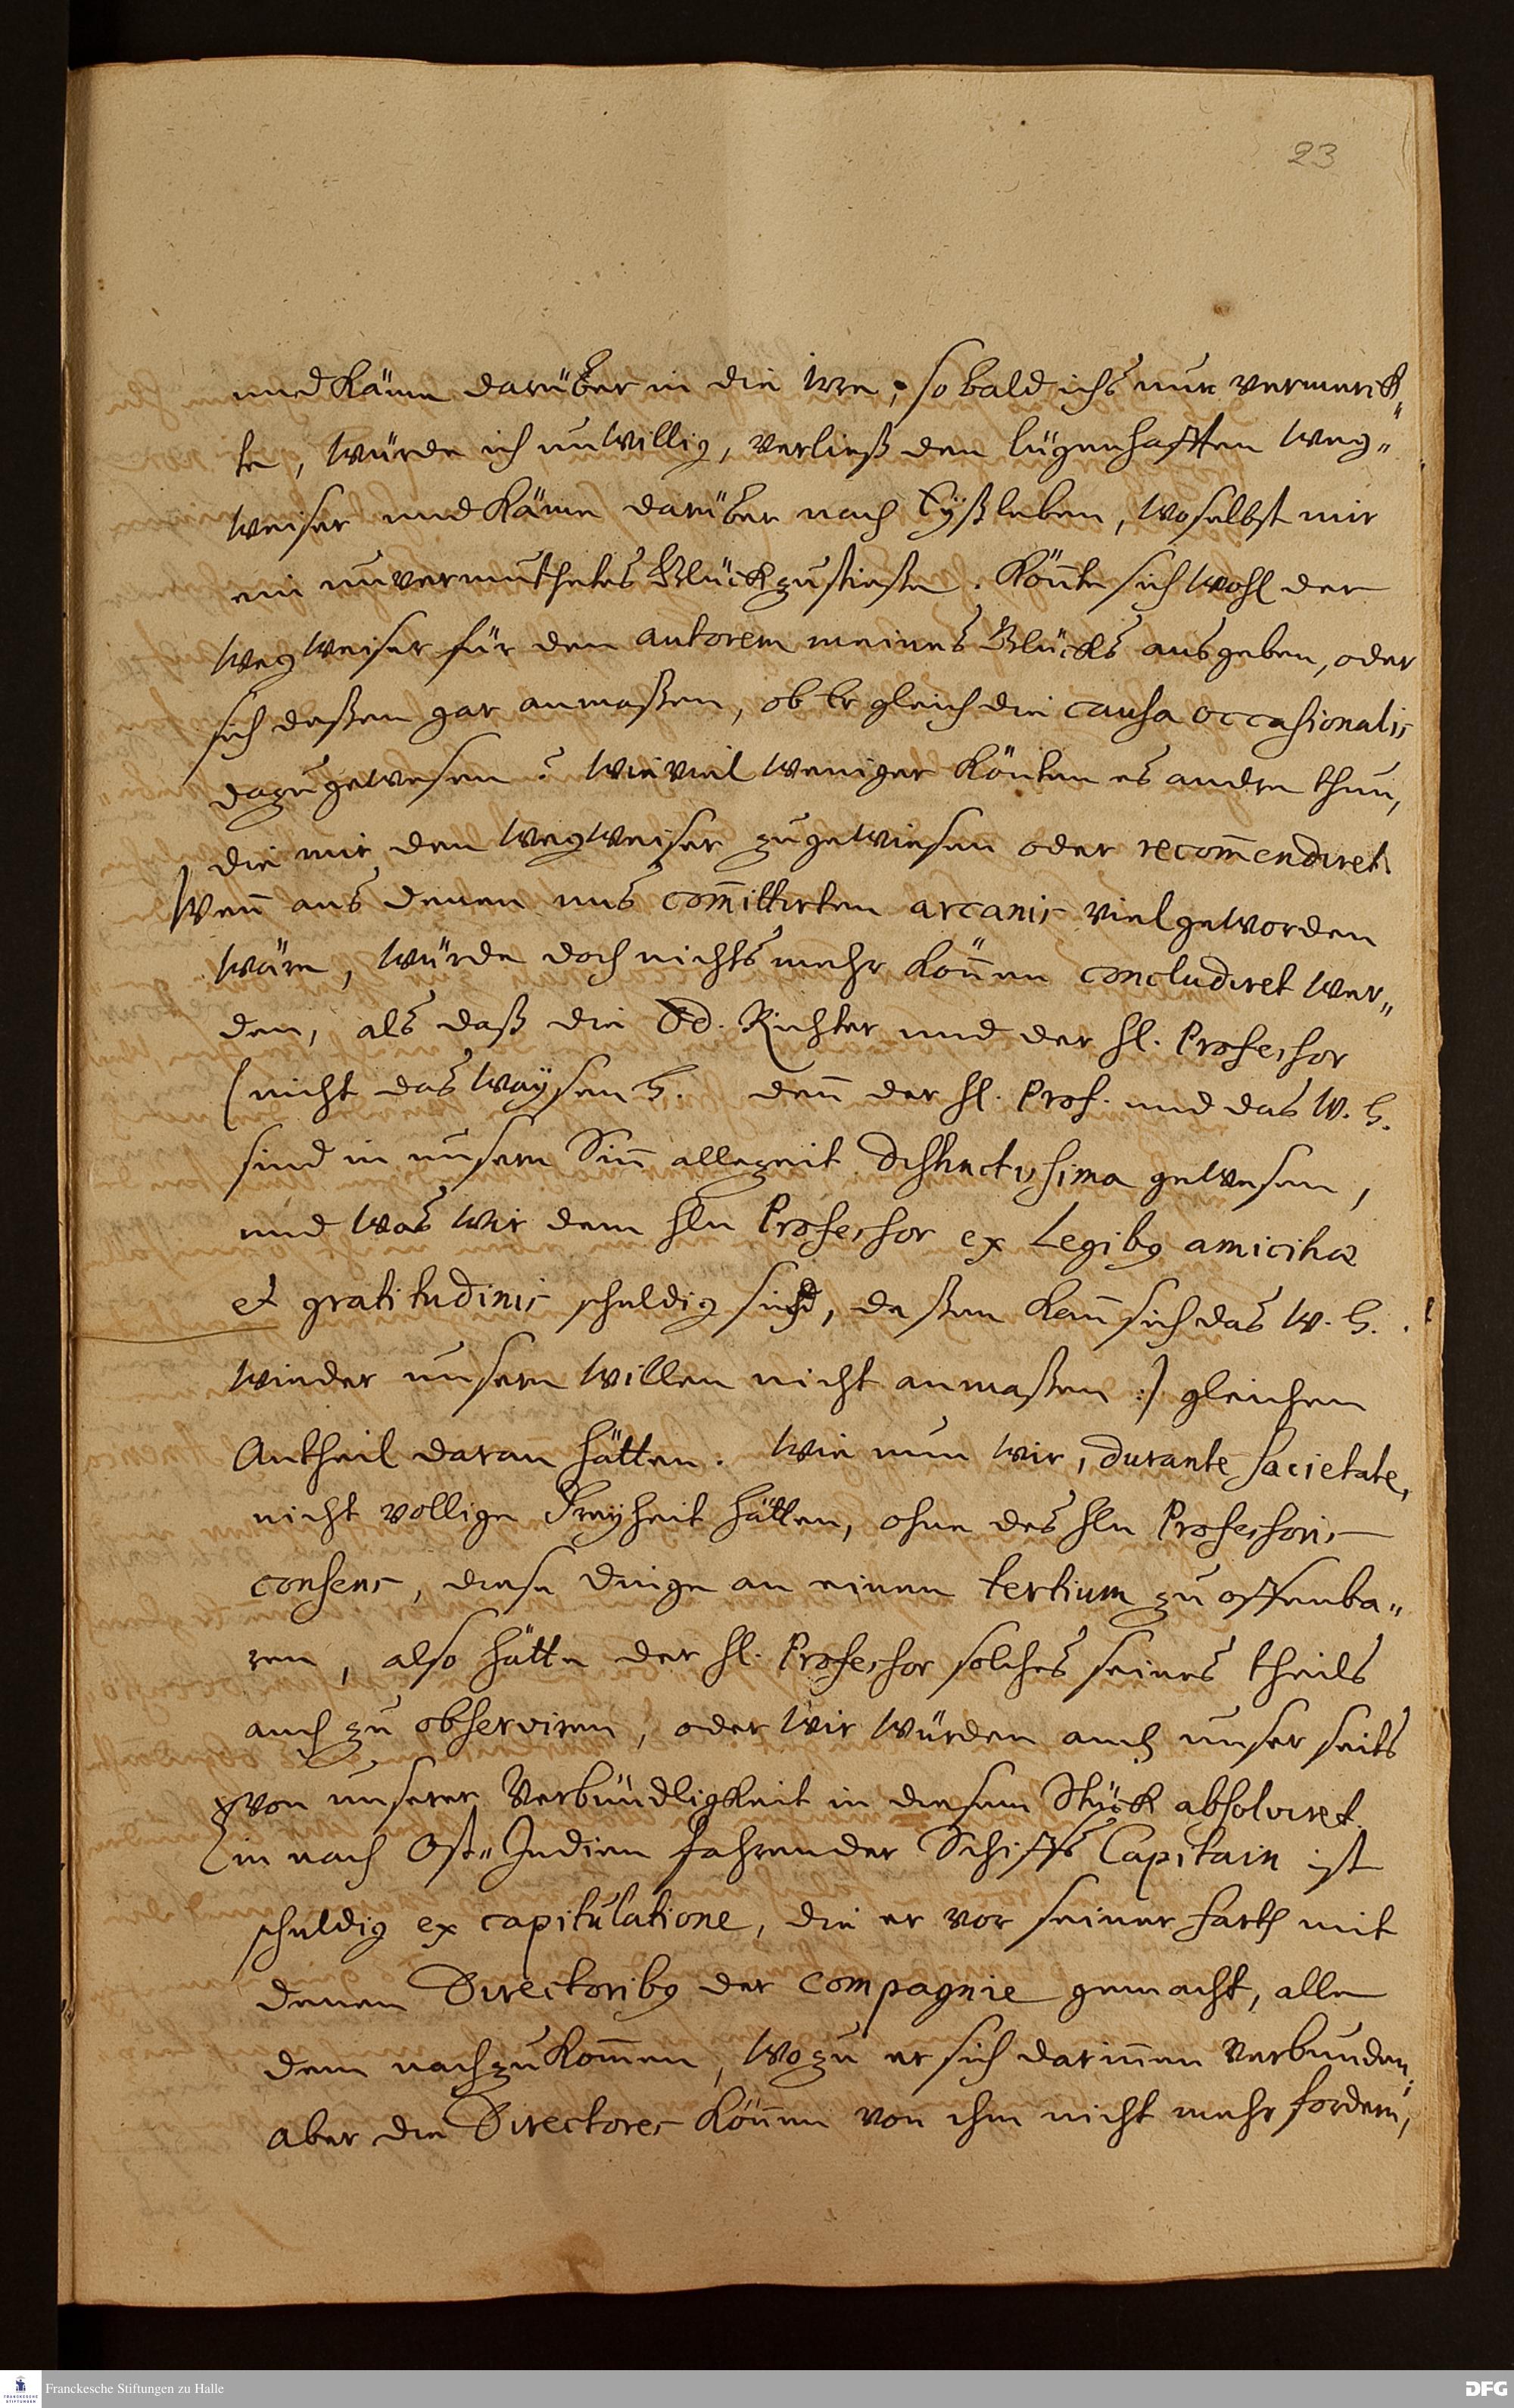 23
und käme darüber in die irre; so bald ichs nur vermerck„
te, würde ich unwillig, verließ den lügenhafften Weg„
weiser und käme darüber nach Eyßleben, woselbst mir
ein unvermuthetes Glück zustieße. Könte sich wohl der
Wegweiser für den autorem meines Glücks ausgeben, oder
sich deßen gar anmaßen, ob er gleich die causa occasionalis
dazu gewesen? wie viel weniger könten es andre thun,
die mir den Wegweiser zugewiesen oder recom̄endiret.
Wen̄ aus denen uns com̄ittirten arcanis viel geworden
wäre, würde doch nichts mehr kön̄en concludiret wer„
den, als daß die Dd. Richter und der H. Professor
(nicht das Waysen H. den̄ der H. Prof. und das W. H.
sind in unserm Sin̄ allezeit distinctissima gewesen,
und was wir dem Hln Professor ex Legibq amicitiae
et gratitudinis schuldig sind, deßen kan̄ sich das W. H.
wieder unsern willen nicht anmaßen:) gleichen
Antheil daran hätten. Wie nun wir, durante societate,
nicht vollige Freyheit hätten, ohne des Hln Professoris
consens, diese Dinge an einen tertium zu offenba„
ren, also hätte der H. Professor solches seines theils
auch zu observiren, oder wir würden auch unser seits
von unserer Verbündligkeit in diesem Stück absolviret.
Ein nach Ost„Indien fahrender Schiffs Capitain ist
schuldig ex capitulatione, die er vor seiner farth mit
denen Directoribq der Compagnie gemacht, alle
dem nachzukom̄en, wozu er sich darin̄en verbunden;
aber die Directores kön̄en von ihm nicht mehr fordern,
FRANCKESCHE STIFTUNGEN
Franckesche Stiftungen zu Halle
DFG